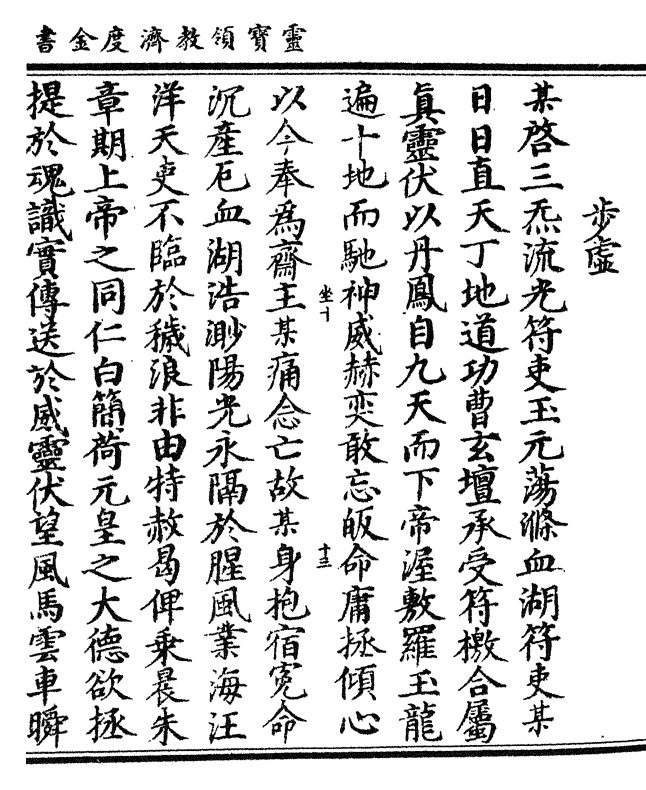 靈寶領教濟度金書
步虛
某啓三炁流光符吏玉元蕩滌血湖符吏某
日日直天丁地道功曹玄壇承受符檄合屬
眞靈伏以丹鳳自九天而下帝渥敷羅玉龍
遍十地而馳神威赫奕敢忘皈命庸拯傾心
坐十
十三
以今奉爲齋主某痛念亡故某身抱宿寃命
沉產厄血湖浩渺陽光永隔於腥風業海汪
洋天吏不臨於穢浪非由特赦曷俾乗晨朱
章期上帝之同仁白簡荷元皇之大德欲拯
提於魂識實傳送於威靈伏望風馬雲車瞬